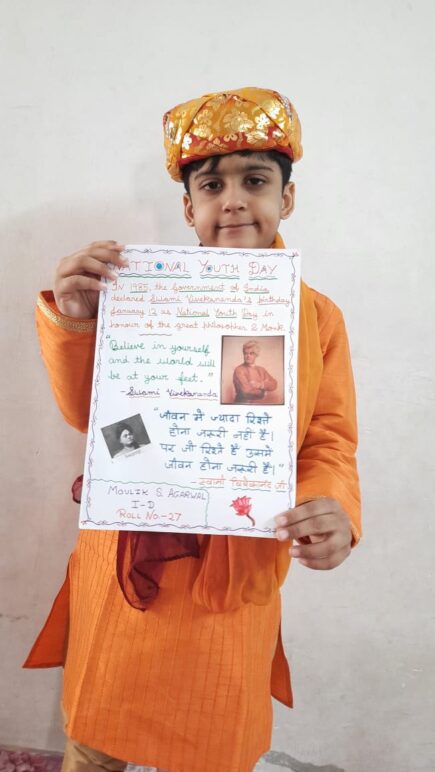 NATIONAL YOUTH DAY
IN 1985, the Government of India
declared Swami Vivekananda's birthday
January 12 as National Youth Day in
honour of the great philosopher & Monk.
"Believe in yourself
and the world will
be at your feet."
-Swami Vivekananda
"जीवन मे ज्यादा रिश्ते
होना जरूरी नहीं है।
पर जो रिश्ते है उसमे
जीवन होना जरूरी है।"
-स्वामी विवेकानंद जी
MOULIK S. AGARWAL
I-D
ROLL NO.-27